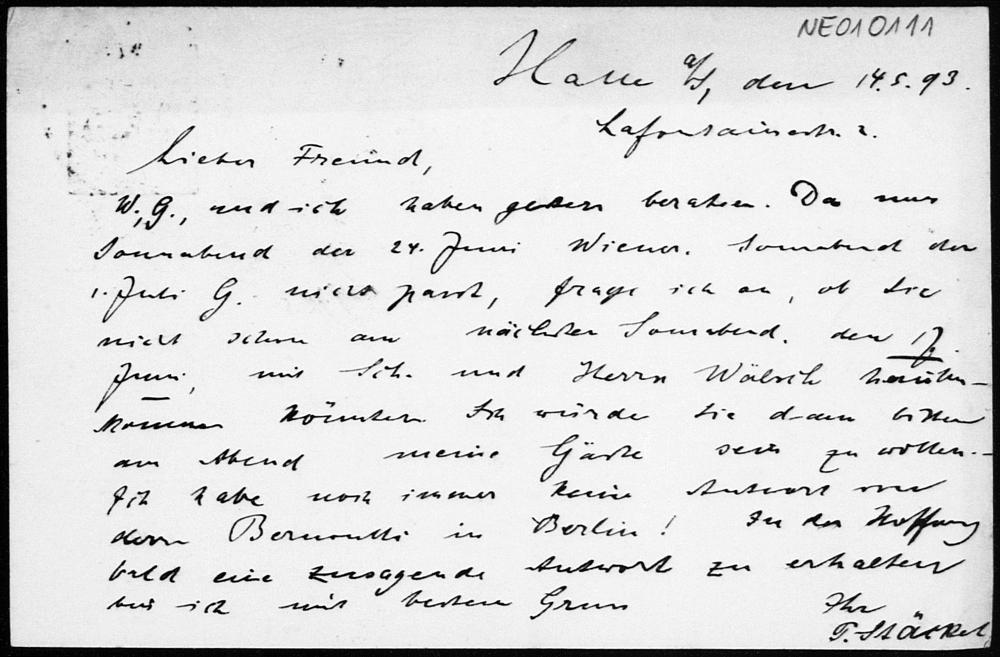 NE010111
Halle a/S, den 14.5.93.
Lafontainestr. 2.
Lieber Freund,
W., G., und ich haben gestern beraten. Da nun
Sonnabend der 24. Juni Wiener. Sonnabend der
1. Juli G. nicht passt, frage ich an, ob Sie
nicht schon am nächsten Sonnabend, den 17.
Juni, mit Sch. und Herrn Wölsch
kommen könnten. Ich würde Sie dann bitten
am Abend meine Gäste sein zu wollen.-
Ich habe noch immer keine Antwort von
dem Bernoulli in Berlin! In der Hoffnung
bald eine zusagende Antwort zu erhalten
bin ich mit bestem Gruss
Ihr
P. Stäckel